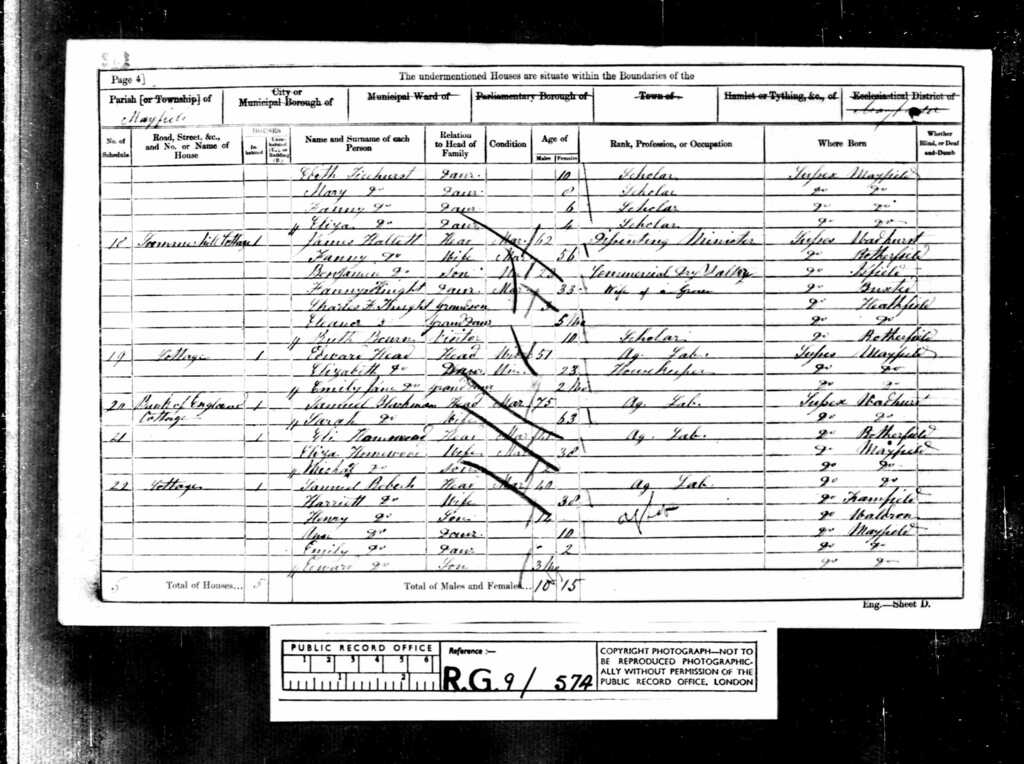 Page 4]
The undermentioned Houses are situate within the Boundaries of the
Parish [or Township] of
Mayfield
City or Municipal Borough of
Municipal Ward of
Parliamentary Borough of
Town of
Hamlet or Tything, &c., of
Ecclesiastical District of
No. of Schedule
Road, Street, &c., and No. or Name of House
HOUSES
In-habited
Name and Surname of each Person
Relation to Head of Family
Condition
Age of
Males
Females
Rank, Profession, or Occupation
Where Born
Whether Blind, or Deaf-and-Dumb
Daur. 10 Scholar Sussex Mayfield
Mary Do Daur. 8 Scholar Do Do
Fanny Do Daur 6 Scholar Do Do
Eliza Do Daur 4 Scholar Do Do
18 1 James Hallett Head Mar 62 Dissenting Minister Sussex Wadhurst
Fanny Do Wife Mar 56 Do Rotherfield
Benjamin Do Son Un 23 Commercial Do
Fanny Knight Daur Mar 33 Wife of a Grocer Do Buxted
Charles F. Knight Grandson Do Heathfield
Eleanor Grand Daur 5/mo Do Do
Ruth Visitor 10 Scholar Do Rotherfield
19 Cottage 1 Edward Head Head 51 Ag. Lab. Sussex Mayfield
Elizabeth Do Daur Un 23 Housekeeper Do Do
Emily Jane Do Grand Daur 2/mo Do Do
20 Bank of England Cottage 1 Samuel Head Mar 75 Ag. Lab. Sussex Wadhurst
Sarah Do Wife 63 Do Do
21 1 Eli Homewood Head Mar Ag. Lab. Do Rotherfield
Eliza Homewood Wife Mar 38 Do Mayfield
Do Son Do Do
22 Cottage 1 Samuel Roberts Head Mar 40 Ag. Lab. Do Do
Harriett Do Wife 38 Do Framfield
Henry Do Son 12 Do Waldron
Ann Do Daur 10 Do Mayfield
Emily Do Daur 2 Do Do
Edward Do Son 3/mo Do Do
5 Total of Houses... 5 Total of Males and Females... 10 15
Eng.—Sheet D.
PUBLIC RECORD OFFICE
1 2 3 4 5 6
1 2
Reference :-
R.G. 9/ 574
COPYRIGHT PHOTOGRAPH—NOT TO
BE REPRODUCED PHOTOGRAPHIC-
ALLY WITHOUT PERMISSION OF THE
PUBLIC RECORD OFFICE, LONDON